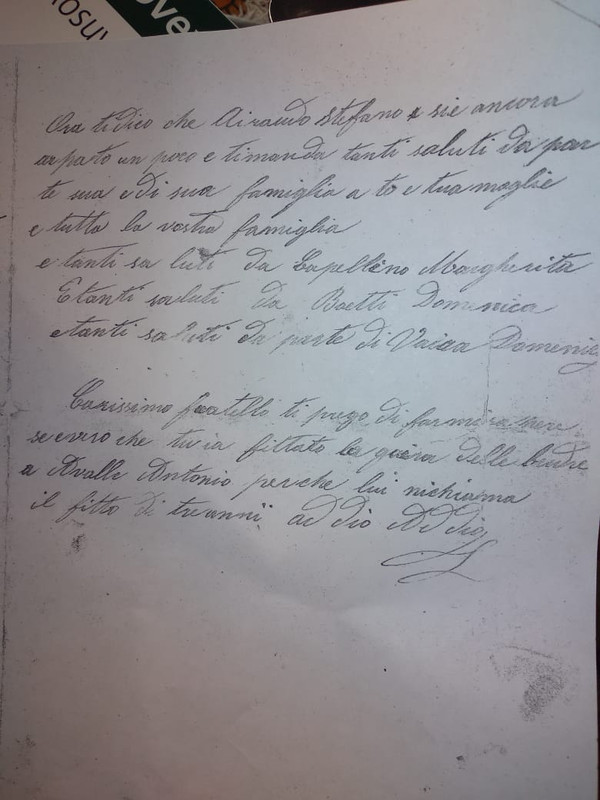 nosu
ove
Ora ti dico che Airaudo Stefano e sie ancora
arpato un poco e timanda tanti saluti da par
te sua e di sua famiglia a te e tua moglie
e tutta la vostra famiglia
e tanti sa luti da Capellino Margherita
E tanti saluti da Boetti Domenica
e tanti saluti da parte di Domenic
Carissimo fratello ti prego di farmi
se evero che tu ia fittato la delle
a Avalle Antonio perche lui nichiama
il fitto di tre anni ad dio Ad dio